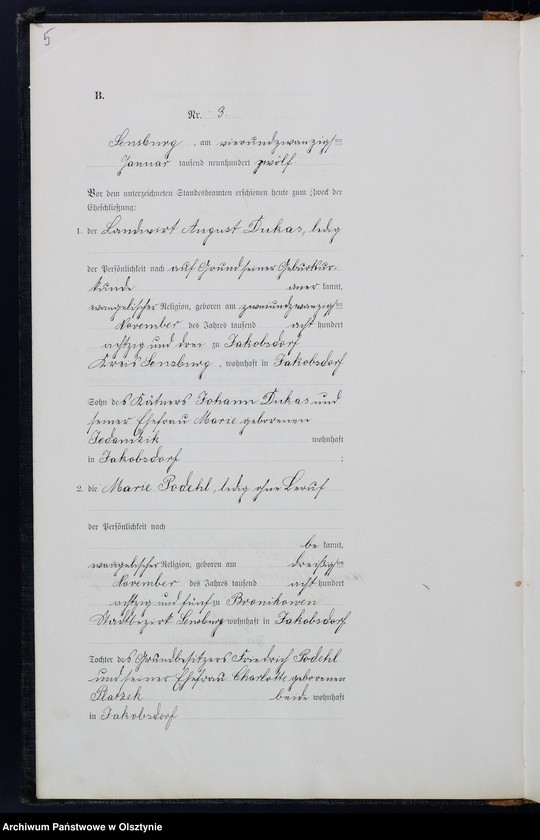 5
B.
Nr. 3.
Sensburg, am vierundzwanzigsten
Januar tausend neunhundert zwölf.
Vor dem unterzeichneten Standesbeamten erschienen heute zum Zweck der
Eheschließung:
1. der Landwirt August Dukas, ledig
der Persönlichkeit nach auf Grund seiner Geburtsur-
kunde anerkannt,
evangelischer Religion, geboren am zweiundzwanzigsten
November des Jahres tausend acht hundert
achtzig und drei zu Jakobsdorf
Kreis Sensburg, wohnhaft in Jakobsdorf
Sohn des Kätners Johann Dukas und
seiner Ehefrau Marie geborenen
Jedamzik wohnhaft
in Jakobsdorf :
2. die Marie Podehl, ledig ohne Beruf
der Persönlichkeit nach
be kannt,
evangelischer Religion, geboren am dreißigsten
November des Jahres tausend acht hundert
achtzig und fünf zu Bronikowen
Stadtbezirk Sensburg wohnhaft in Jakobsdorf
Tochter des Grundbesitzers Friedrich Podehl
und seiner Ehefrau Charlotte geborenen
Platzek beide wohnhaft
in Jakobsdorf
Archiwum Państwowe w Olsztynie